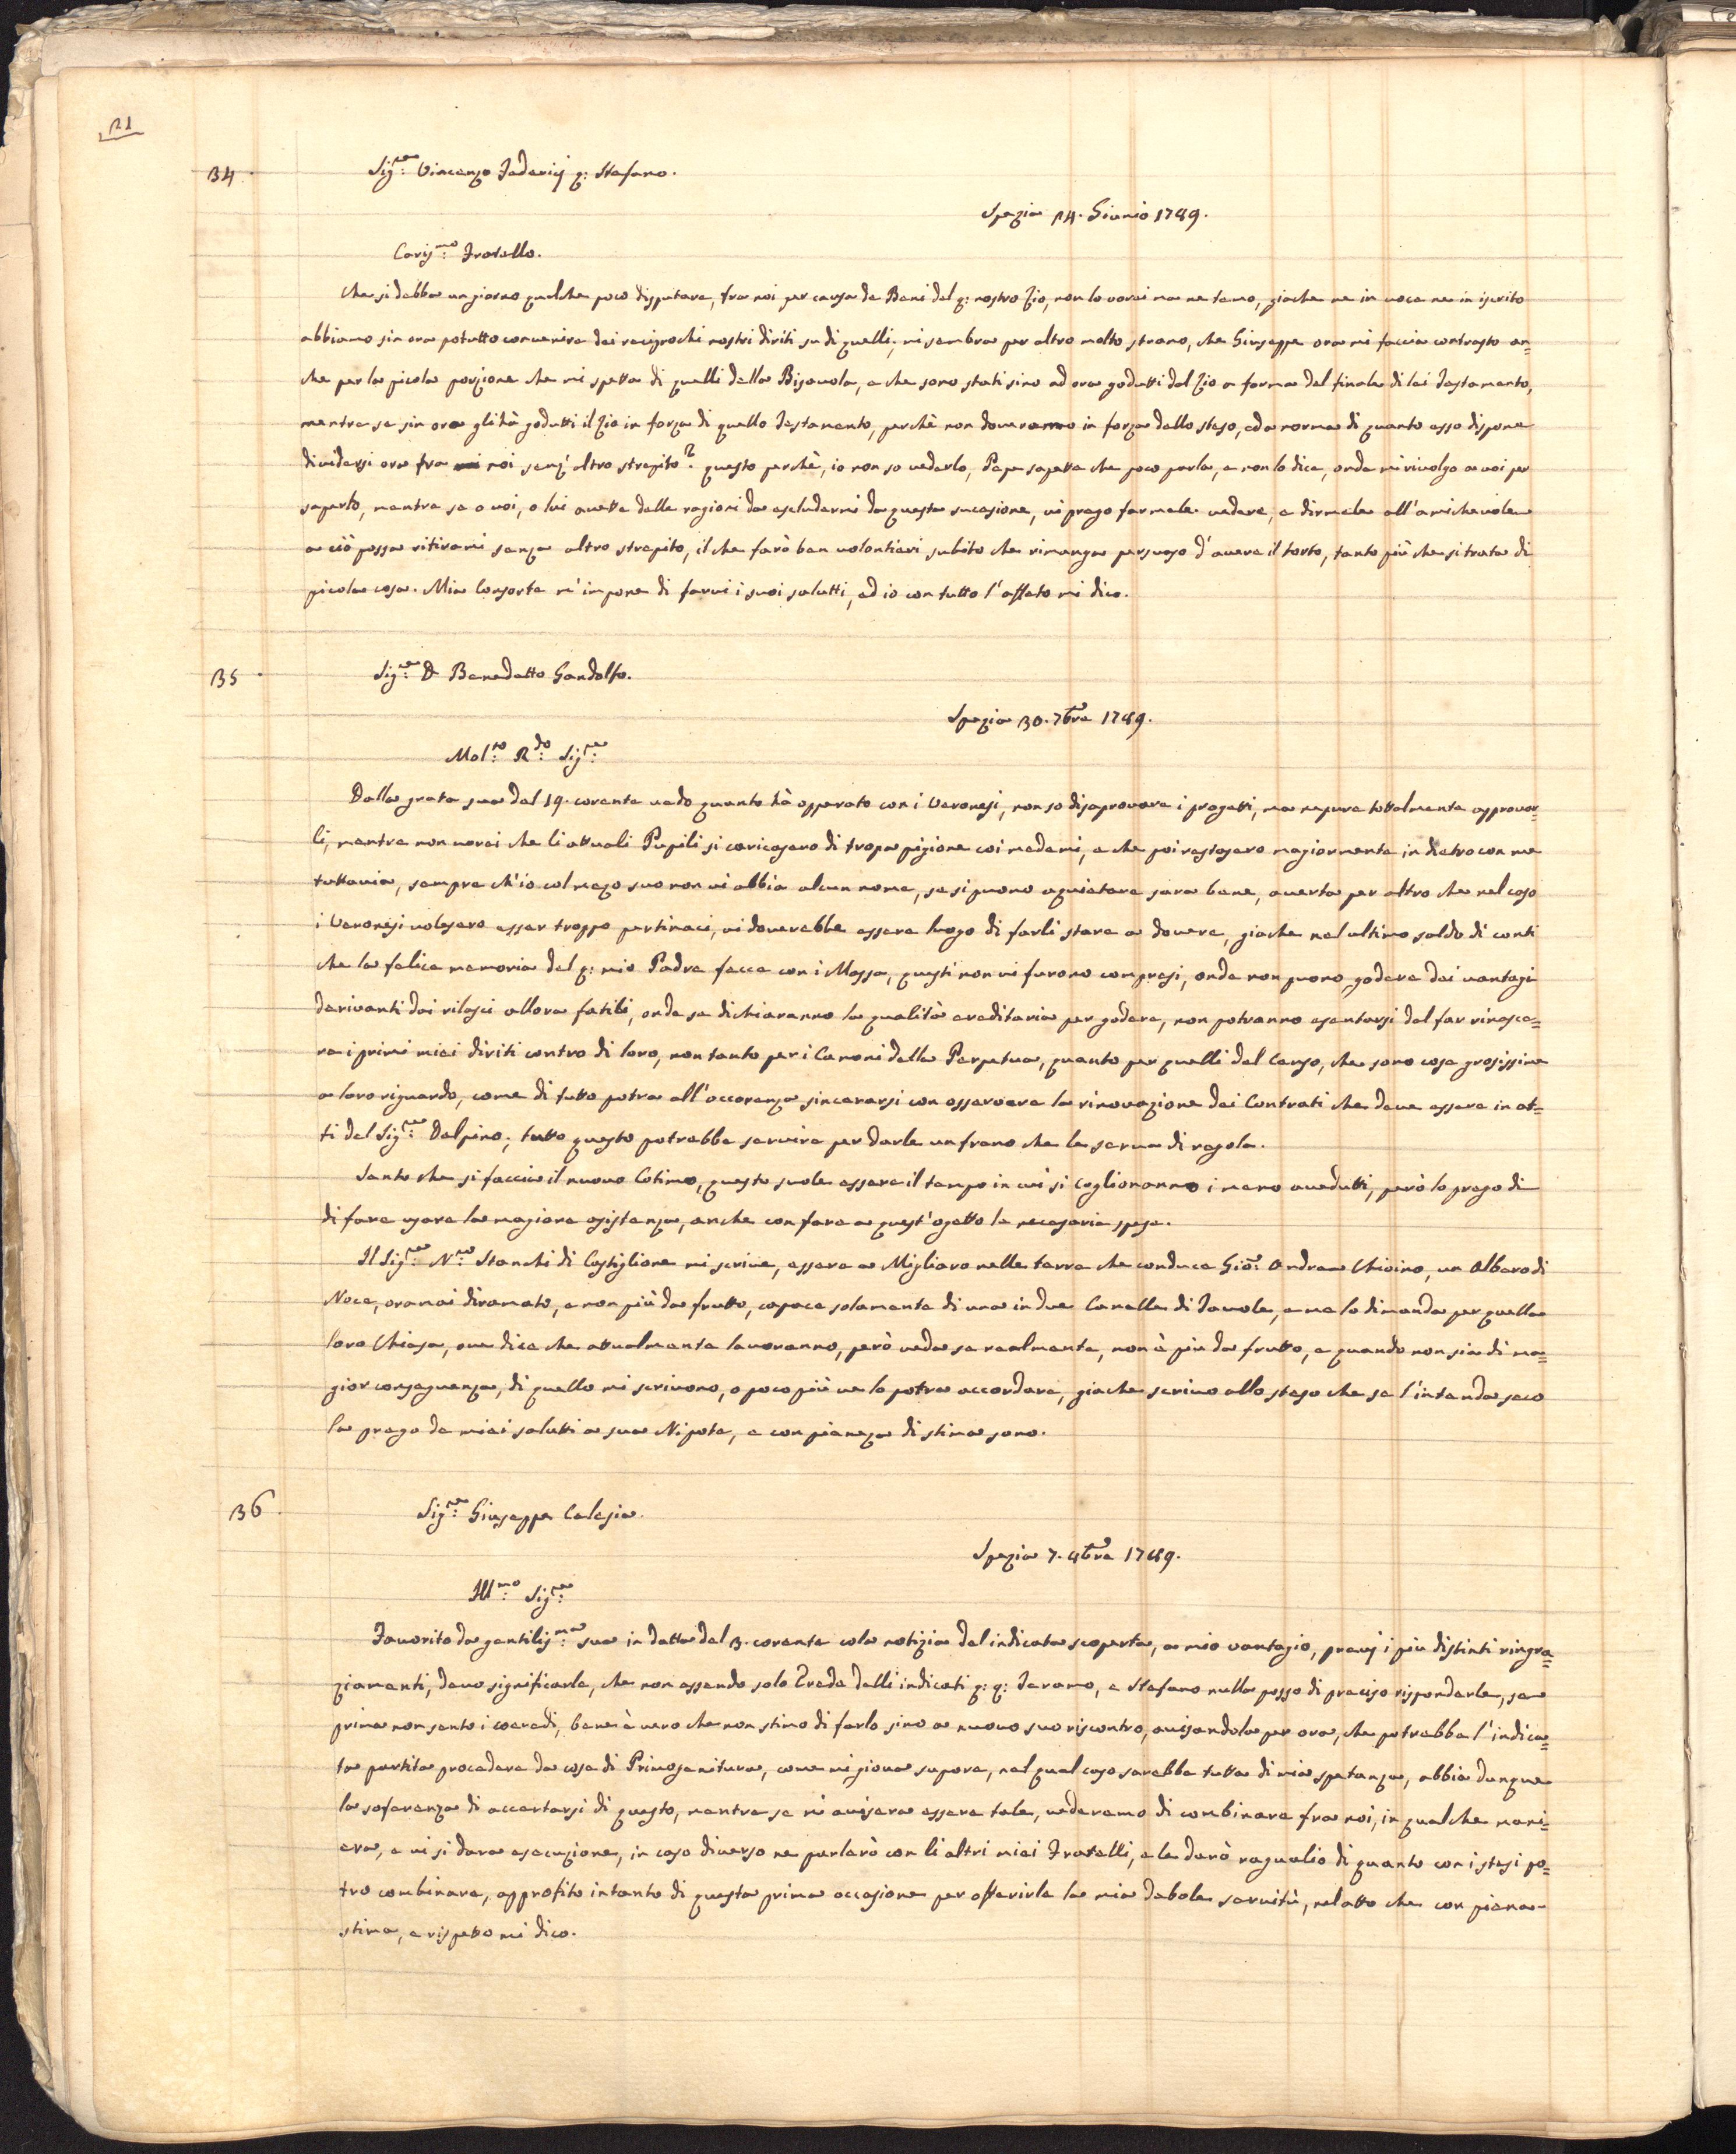 21
34. Sig.re Vincenzo Federicj q: Stefano.
Spezia 24. Giunio 1789.
Caris.mo Fratello.
Che si debba un giorno qualche poco disputare, fra noi per causa de Beni del q: nostro Zio, non lo vorei ma ne temo, giache ne in voce ne in iscrito
abbiamo sin ora potutto convenire dei reciprochi nostri diriti su di quelli; mi sembra per altro molto strano, che Giuseppe ora mi faccia contrasto an=
che per la picola porzione che mi spetta di quelli della Bisavola, e che sono stati sino ad ora godutti dal Zio a forma del finale di lei Testamento,
mentre se sin ora gli hà godutti il Zio in forza di quello Testamento, perchè non doveranno in forza dello steso, ed a norma di quanto esso dispone
dividersi ora fra noi senz'altro strepito? questo perchè, io non so vederlo, Pepe sapete che poco parla, e non lo dice, onde mi rivolgo a voi per
saperlo, mentre se o voi, o lui avette delle ragioni da escludermi da questa sucesione, vi prego farmele vedere, e dirmele all'amichevole
a ciò possa ritirami senza altro strepito, il che farò ben volontieri subito che rimanga persuaso d'avere il torto, tanto più che si trata di
picola cosa. Mia Consorte m'impone di farvi i suoi salutti, ed io con tutto l'affeto mi dico.
35. Sig.re D Benedetto Gandolfo.
Spezia 30. 7bre 1789.
Mol.to R.do Sig.re
Dalla grata sua del 19. corente vedo quanto hà opperato con i Veronesi, non so disaprovare i progetti, ma nepure tottalmente approvar=
li, mentre non vorei che li attuali Pupili si caricasero di tropa pigione coi medemi, e che poi restasero magiormente in dietro con me
tuttavia, sempre ch'io col mezo suo non vi abbia alcun nome, se si puono aquietare sara bene, averta per altro che nel caso
i Veronesi volesero esser troppo pertinaci, vi doverebbe essere luogo di farli stare a dovere, giache nel ultimo saldo di conti
che la felice memoria del q: mio Padre fecce con i Massa, questi non vi furono compresi, onde non puono godere dei vantagi
derivanti dai rilasci allora fatili, onde se dichiaranno la qualità ereditaria per godere, non potranno esentarsi dal far rinasce=
re i primi miei diriti contro di loro, non tanto per i Canoni della Perpetua, quanto per quelli del Censo, che sono cosa grosissima
a loro riguardo, come di tutto potra all'occorenza sincerarsi con osservare la rinovazione dei Contrati che deve essere in at=
ti del Sig.re Delpino; tutto questo potrebbe servire per darle un freno che le serva di regola.
Sento che si faccia il nuovo Cotimo, questo suole essere il tempo in cui si coglionanno i meno avedutti, però lo prego di
di fare usare la magiore asistenza, anche con fare a quest'ogetto le necesarie spese.
Il Sig.re N.ro Stanchi di Castiglione mi scrive, essere a Migliaro nelle terre che conduce Gio: Andrea Chioino, un Albero di
Noce, oramai diramato, e non più da frutto, capace solamente di una in due Canelle di Tavole, e me lo dimanda per quella
loro Chiesa, ove dice che attualmente lavoranno, però veda se realmente, non è più da frutto, e quando non sia di ma=
gior conseguenza, di quello mi scrivono, o poco più ve lo potra accordare, giache scrivo allo steso che se l'intenda seco
la prego de miei salutti a sua Nipote, e con pieneza di stima sono.
36. Sig.re Giuseppe Calesia.
Spezia 7. 9bre 1789.
Ill.mo Sig.re
Favorito da gentilis.ma sua in datta del 3. corente cola notizia del indicata scoperta, a mio vantagio, previj i piu distinti ringra=
ziamenti, devo significarle, che non essendo solo Erede delli indicati q: q: Teramo, e Stefano nulla posso di preciso risponderle, se
prima non sento i coeredi, bene è vero che non stimo di farlo sino a nuovo suo riscontro, avisandola per ora, che potrebbe l'indica=
ta partita procedere da cosa di Primogenitura, come mi giova supore, nel qual caso sarebbe tutta di mia spetanza, abbia dunque
la soferenza di accertarsi di questo, mentre se mi avisera essere tale, vederemo di combinare fra noi, in qualche mani=
era, e vi si dara esecuzione, in caso diverso ne parlarò con li altri miei Fratelli, e le darò raguaglio di quanto con i stesi po=
tro combinare, approfito intanto di questa prima occasione per offerirle la mia debole servitù, nel atto che con piena
stima, e rispetto mi dico.